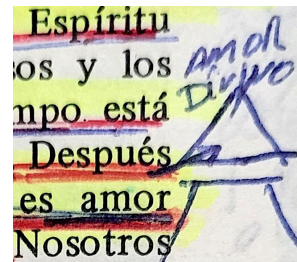 Espíritu
os y los
mpo está
Después
es amor
Nosotros
AMOR
Divino